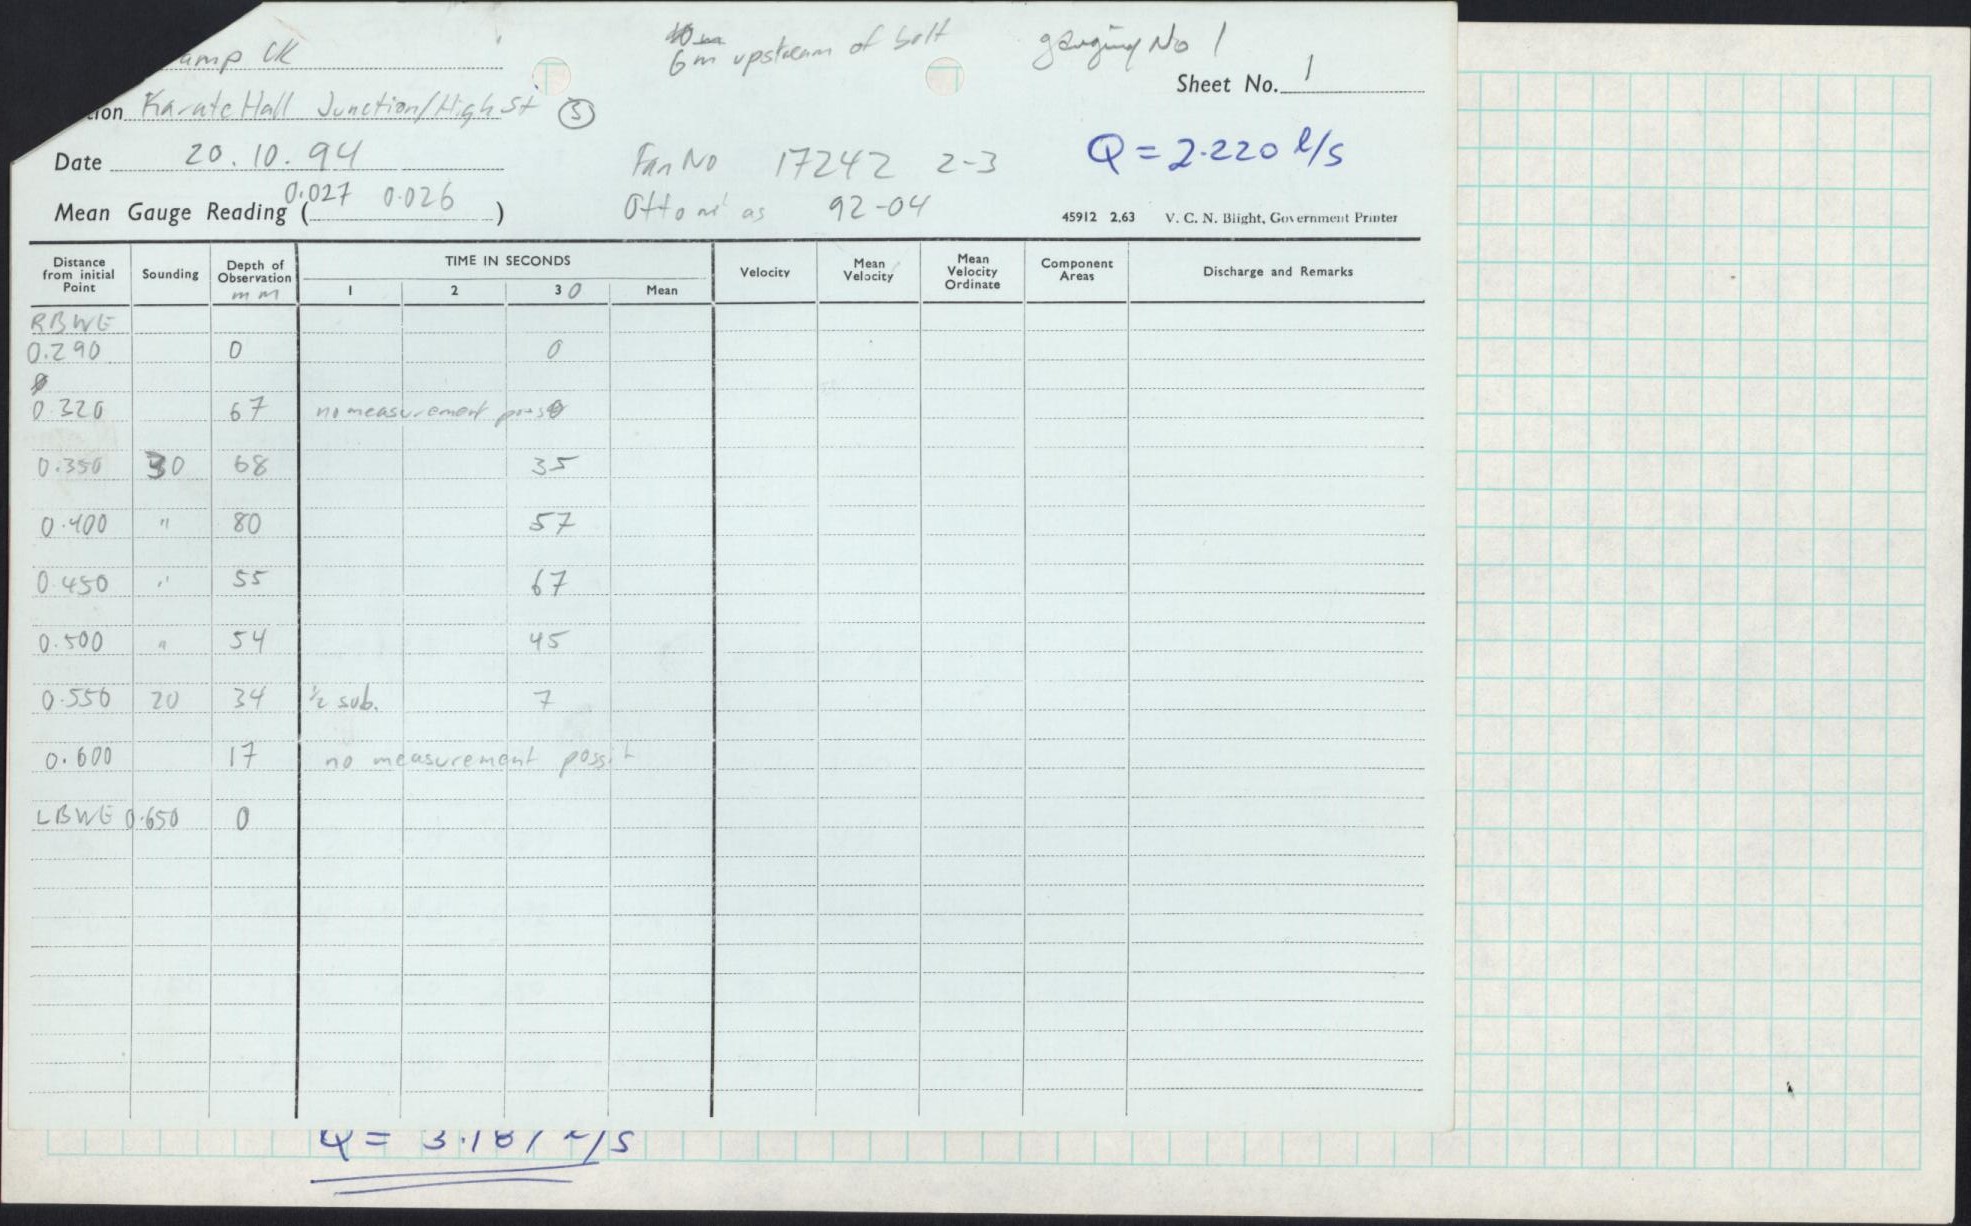 amp Ck
6m upstream of bolt
gauging No 1
Sheet No. 1
tion Karate Hall Junction/High St (5)
Date 20.10.94
Fan No 17242 2-3
Q = 2.220 l/s
Mean Gauge Reading (0.027 0.026)
Ott 92-04
45912 2,63 V. C. N. Blight, Government Printer
Distance from initial Point
Sounding
Depth of Observation mm
TIME IN SECONDS
1 2 30 Mean
Velocity
Mean Velocity
Mean Velocity Ordinate
Component Areas
Discharge and Remarks
RBWE
0.290 0 0
0.320 67 no measurement poss
0.350 30 68 35
0.400 " 80 57
0.450 " 55 67
0.500 " 54 45
0.550 20 34 ½ sub. 7
0.600 17 no measurement possi
LBWE 0.650 0
Q = 3.187 l/s